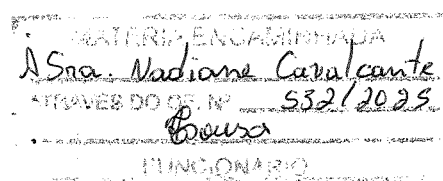 MATÉRIA ENCAMINHADA
À Sra. Nadiane Cavalcante
ATRAVÉS DO OF. Nº 532/2025
Sousa
FUNCIONÁRIO